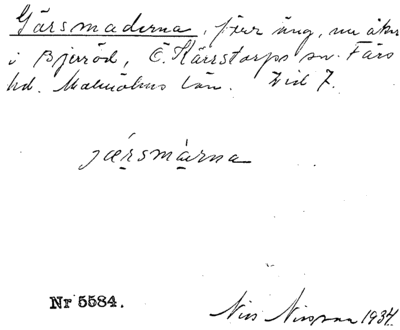 Gårsmaderna, förr äng, nu åker
i Bjeröd, Ö. Kärrstorps sn. Färs
hd. Malmöhus län. Vid 7.
jǽrsmàrna
Nr 5584.
Nils Nilsson 1934.